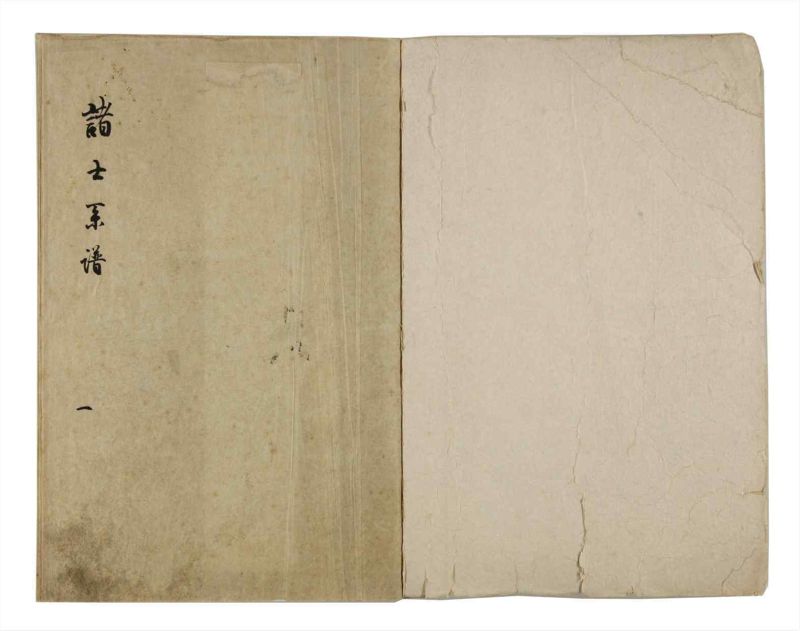 諸士系譜
一